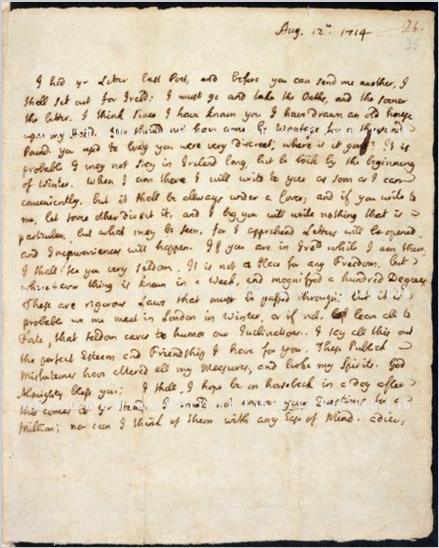 Aug. 12th 1714
26.
35
I had yr Letter last Post, and before you can send me another, I
shall set out for Ireld: I must go and take the Oaths, and the sooner
the better. I think since I have known you I have drawn an old house
upon my Head. You should not have come by Wantage for a thousand
Pound. you used to brag you were very discreet; where is it gon? It is
probable I may not stay in Ireland long, but be back by the beginning
of Winter. When I am there I will write to you as soon as I can
conveniently, but it shall be allways under a Cover; and if you write to
me, let some other direct it, and I beg you will write nothing that is
particular, but what may be seen, for I apprehend Letters will be opened
and Inconveniences will happen. If you are in Ireld while I am there,
I shall see you very seldom. It is not a Place for any Freedom, but
where ever thing is known in a Week, and magnifyed a hundred Degrees
These are rigorous Laws that must be passed through: but it is
probable we may meet in London in Winter, or if not, leave all to
Fate, that seldom cares to humor our Inclinations. I say all this out
the perfect Esteem and Friendship I have for you. These Publick
Misfortunes have altered all my Measures, and broke my Spirits. God
Almighty bless you; I shall, I hope be on horseback in a day after
this comes to yr Hand. I would not answer your Questions for a
Million; nor can I think of them with any Ease of Mind. adieu,